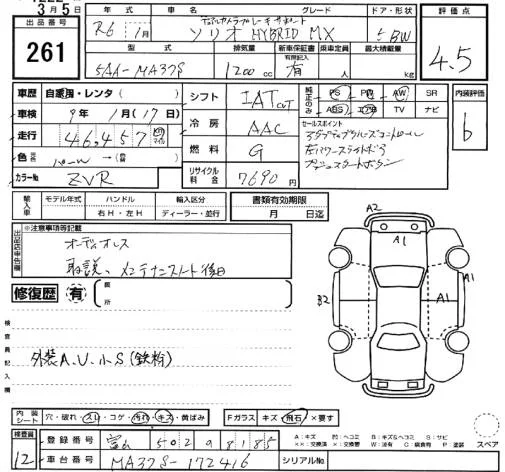 3月5日
出品番号
261
年式 車名 グレード ドア・形状
R6 1月 デュアルカメラブレーキサポート
ソリオ HYBRID MX 5 BW
評価点
4.5
型式 排気量 新車保証書 乗車定員 最大積載量
5AA-MA37S 1200cc 有無記入 有 人 kg
車歴 自家用・レンタ( )
車検 9年 1月(17日)
走行 46,457 Km マイル
色 元色 パール → (色替)
カラーNo ZVR
シフト IAT CVT
冷房 AAC
燃料 G
リサイクル料金 7690円
純正のみ PS PW AW SR
ABS エアB TV ナビ
セールスポイント
アダプティブクルーズコントロール
左パワースライドドア
プッシュスタートボタン
内装評価
b
輸入車 モデル年式 ハンドル 輸入区分
年 右H・左H ディーラー・並行
書類有効期限
月 日迄
出品店申告欄
※注意事項等記載
オーディオレス
取説、メンテナンスノート後日
修復歴 有 箇所
検査員記入欄
外装A、U、小S(鉄粉)
A2
A1
B2
A1
A1
内装シート 穴・破れ・スレ・コゲ・汚れ・キズ・黄ばみ Fガラス キズ・飛石×要す
検査員
12
登録番号 富山 502 す 8185
車台番号 MA37S-172416
シリアルNo
A:キズ P:ヘコミ B:キズ&ヘコミ S:サビ
××:交換済 ×:要交換 W:波有 C:腐食有 P:塗装 スペア